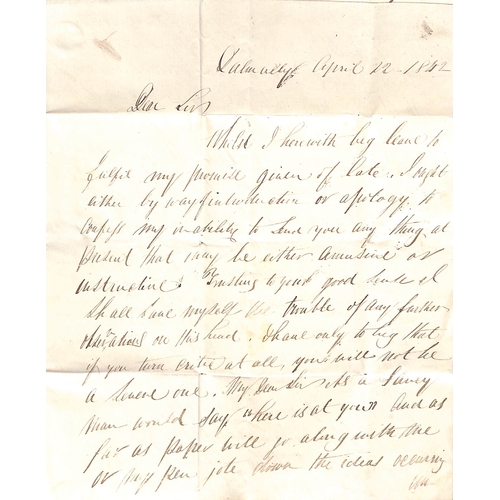 Dalmally April 22 - 1842
Dear Sir
Whilst I herewith beg leave to
fulfil my promise given of late. I ought
either by way of introduction or apology to
confess my inability to send you any thing at
present that may be either amusing or
instructive. Trusting to your good sense I
shall save myself the trouble of any further
observations on this head. I have only to beg that
if you turn critic at all, you will not be
a severe one. My Dear Sir As a
man would say, where is at you and as
far as paper will go along with me
or my pen jote down the ideas occurring